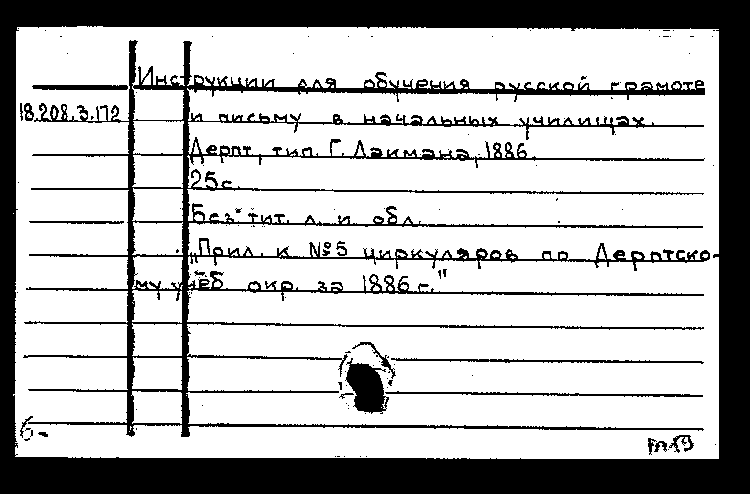 Инструкции для обучения русской грамоте
18.208.3.172
и письму в начальных училищах.
Дерпт, тип. Г. Лакмана, 1886.
25с.
Без тит. л. и обл.
„Прил. к №5 циркуляров по Дерптско-
му учеб. окр. за 1886 г."
6-